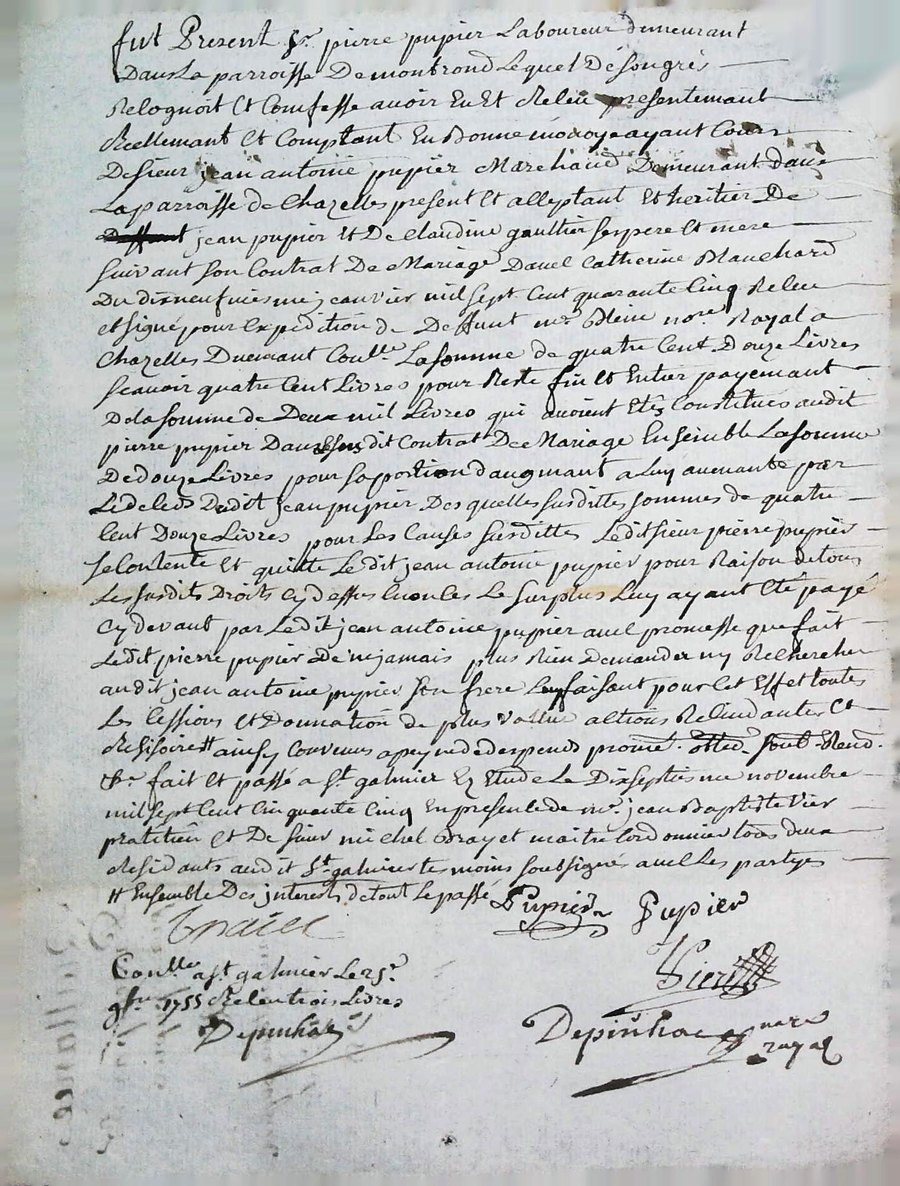 fut Present Sr. pierre pupier Laboureur demeurant
Dans La parroisse De montrond Lequel De son gres
Recognoit Et Comfesse avoir Eu Et Receu presentemant
Reellemant Et Comptant En Bonne monoye ayant Cours
De sieur jean antoine pupier Marchand Demeurant dans
La parroisse de Chazelles present Et acceptant Et heritier De
Deffunt jean pupier Et De claudine gaultier ses pere Et mere
suivant son Contrat De Mariage Davec Catherine Blanchard
Du dixneufviesme janvier mil sept Cent quarante Cinq Receu
et signé pour Expedition de Deffunt me. Blein nore. Royal a
Chazelles Duemant Conlle. La somme de quatre Cent Douze Livres
scavoir quatre Cent Livres pour Reste fin et Entier payemant
De la somme de Deux mil Livres qui avoient Etés Constitues audit
pierre pupier Dans Susdit Contrat De Mariage Ensemble La somme
De douze Livres pour sa portion d'augmant a Luy avenante par
Le deces Dudit jean pupier Des quelles susdittes sommes de quatre
Cent Douze Livres pour Les Causes susdittes Ledit sieur pierre pupier
se Contente Et quitte Le dit jean antoine pupier pour Raison de tous
Les susdits Droits Cy desses Le surplus Luy ayant Eté payé
Cy devant par Ledit jean antoine pupier avec promesse que fait
Ledit pierre pupier De ne jamais plus Rien Demander ny Rechercher
audit jean antoine pupier Son frere Luy faisant pour Cet Effet toutes
Les Cessions Et Donnation de plus vallue actions Recindantes Et
Resisoire # ainsy Convenus a peyne de despends prome. Soub. Rend.
fait Et passé a St. galmier En Etude Le Dixseptiesme novembre
mil sept Cent Cinquante Cinq En presence de me. jean Baptiste Vier
pratitien Et De sieur michel maitre Cordonnier tous deux
Residants audit St. galmier temoins soubsignés avec Les partyes
# Ensemble Des jnterests de tout Le passé
Pupier Pupier
Conlle. a St. galmier Le 25e.
9bre. 1755 Receu trois Livres
Vier
Depinhac
Depinhac nore
royal